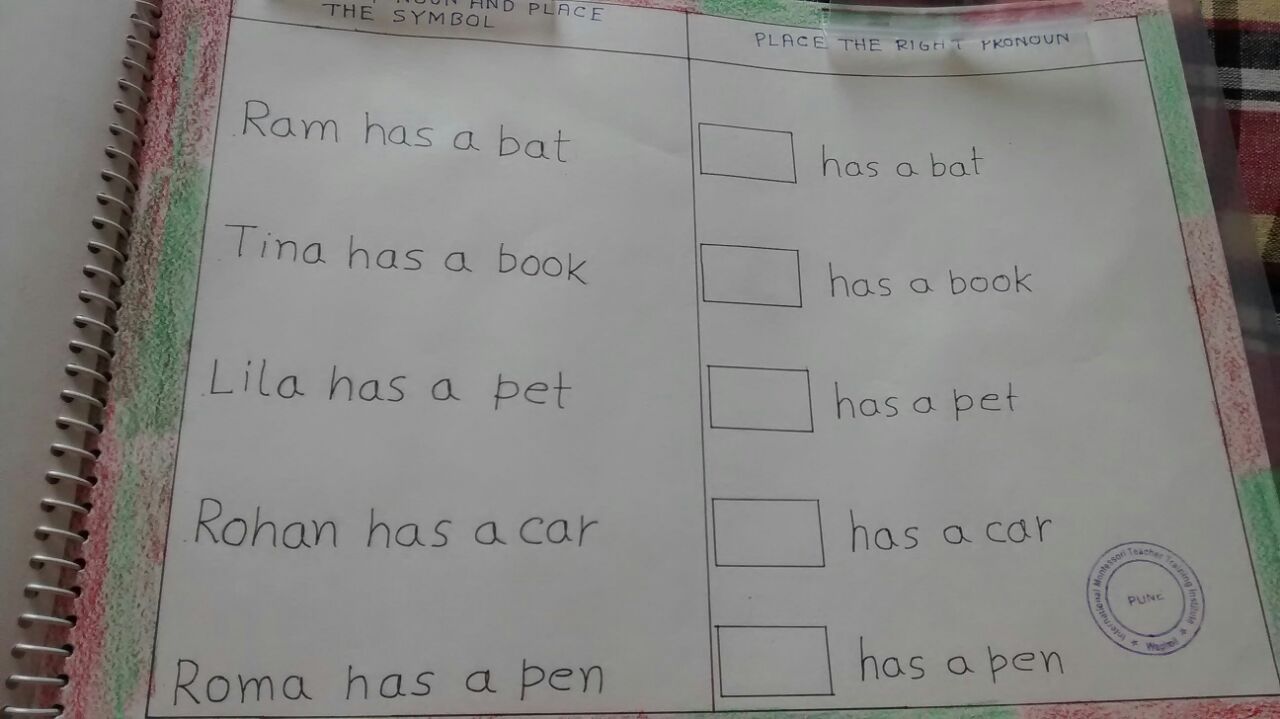 NOUN AND PLACE
THE SYMBOL
PLACE THE RIGHT PRONOUN
Ram has a bat
has a bat
Tina has a book
has a book
Lila has a pet
has a pet
Rohan has a car
has a car
Roma has a pen
has a pen
International Montessori Teacher Training Institute
PUNE